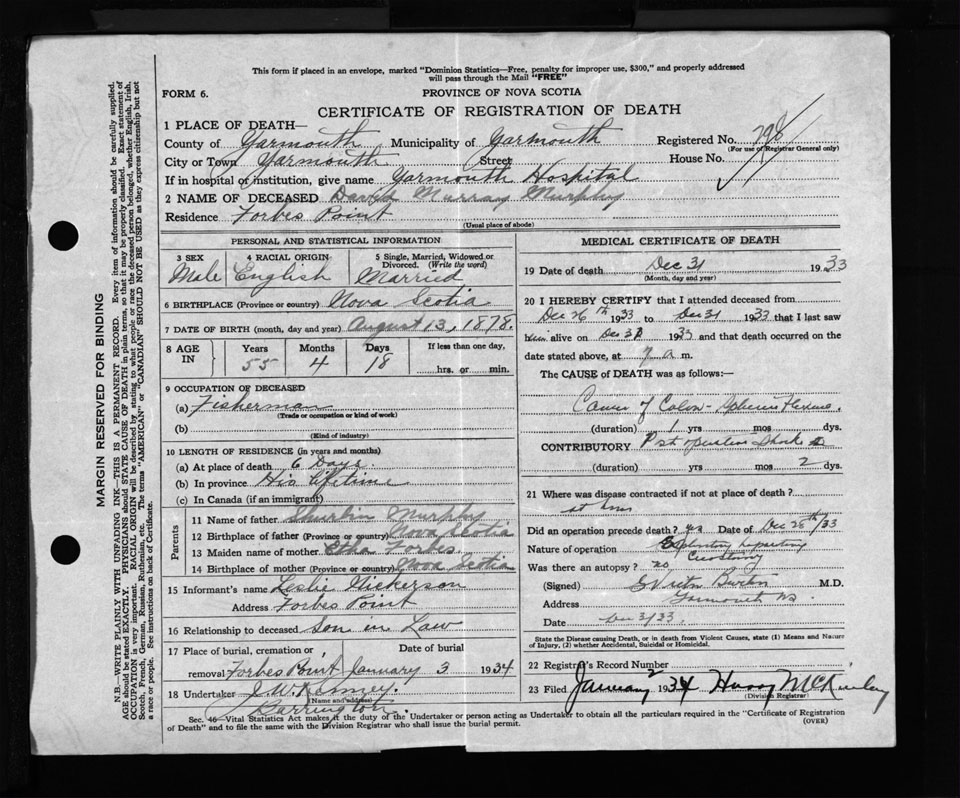 This form if placed in an envelope, marked "Dominion Statistics—Free, penalty for improper use, $300," and properly addressed
will pass through the Mail "FREE"
FORM 6.
PROVINCE OF NOVA SCOTIA
CERTIFICATE OF REGISTRATION OF DEATH
1 PLACE OF DEATH—
County of Yarmouth Municipality of Yarmouth Registered No. 798
(For use of Registrar General only)
City or Town Yarmouth Street House No.
If in hospital or institution, give name Yarmouth Hospital
2 NAME OF DECEASED David Murray Murphy
Residence Forbes Point
(Usual place of abode)
PERSONAL AND STATISTICAL INFORMATION
3 SEX 4 RACIAL ORIGIN 5 Single, Married, Widowed or Divorced. (Write the word)
Male English Married
6 BIRTHPLACE (Province or country) Nova Scotia
7 DATE OF BIRTH (month, day and year) August 13, 1878.
8 AGE IN Years Months Days If less than one day,
55 4 18 hrs. or min.
9 OCCUPATION OF DECEASED
(a) Fisherman
(Trade or occupation or kind of work)
(b)
(Kind of industry)
10 LENGTH OF RESIDENCE (in years and months)
(a) At place of death 6 Days.
(b) In province His lifetime
(c) In Canada (if an immigrant)
Parents
11 Name of father Murphy
12 Birthplace of father (Province or country) Nova Scotia
13 Maiden name of mother Forbes.
14 Birthplace of mother (Province or country) Nova Scotia
15 Informant's name Leslie Nickerson
Address Forbes Point
16 Relationship to deceased Son in Law
17 Place of burial, cremation or removal Date of burial
Forbes Point January 3 1934
18 Undertaker J. W. Kenney.
(Name and address)
Barrington.
MEDICAL CERTIFICATE OF DEATH
19 Date of death Dec 31 1933
(Month, day and year)
20 I HEREBY CERTIFY that I attended deceased from
Dec 26th 1933 to Dec 31 1933 that I last saw
him alive on Dec 1933 and that death occurred on the
date stated above, at a m.
The CAUSE of DEATH was as follows:—
Cancer of Colon - Splenic Flexure.
(duration) 1 yrs mos dys.
CONTRIBUTORY Post operative Shock
(duration) yrs mos 2 dys.
21 Where was disease contracted if not at place of death?
at home
Did an operation precede death? yes Date of Dec 28th/33
Nature of operation Exploratory
Was there an autopsy? no
(Signed) Burton M.D.
Address Yarmouth NS
Date Dec 31/33
State the Disease causing Death, or in death from Violent Causes, state (1) Means and Nature
of Injury, (2) whether Accidental, Suicidal or Homicidal.
22 Registrar's Record Number
23 Filed January 2 1934 Harry McKinley
(Division Registrar)
Sec. 46—Vital Statistics Act makes it the duty of the Undertaker or person acting as Undertaker to obtain all the particulars required in the "Certificate of Registration
of Death" and to file the same with the Division Registrar who shall issue the burial permit.
(OVER)
MARGIN RESERVED FOR BINDING
N.B. WRITE PLAINLY WITH UNFADING INK—THIS IS A PERMANENT RECORD. Every item of information should be carefully supplied.
AGE should be stated EXACTLY. PHYSICIANS should STATE CAUSE OF DEATH in plain terms, so that it may be properly classified. Exact statement of
OCCUPATION is very important. RACIAL ORIGIN will be described by stating to what people or race the deceased person belonged, whether English, Irish,
Scotch, French, German, Russian, Ruthenian, etc. The terms "AMERICAN" or "CANADIAN" SHOULD NOT BE USED as they express citizenship but not
a race or people. See instructions on back of Certificate.